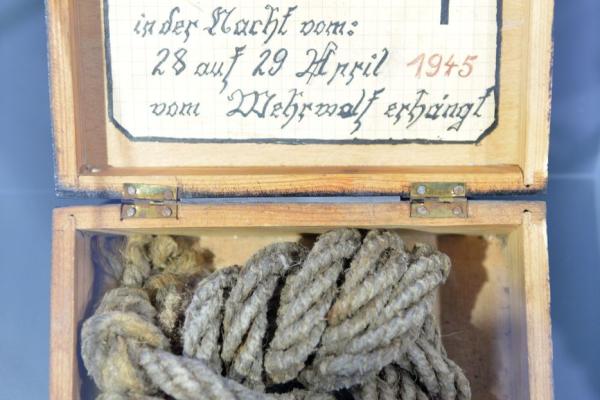 in der Nacht vom:
28 auf 29 April 1945
vom Wehrwolf erhängt